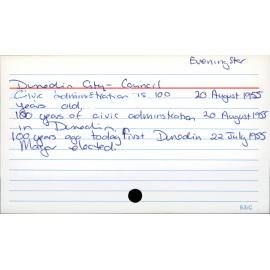 Evening Star
Dunedin City - Council
Civic administration is 100 20 August 1955
years old.
100 years of civic administration 20 August 1955
in Dunedin
100 years ago today first Dunedin 22 July 1955
Mayor elected.